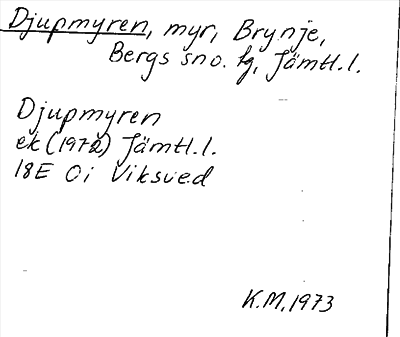 Djupmyren, myr, Brynje,
Bergs sno. kg, Jämtl.l.
Djupmyren
ek (1972) Jämtl.l.
18E 0i Viksved
K.M. 1973